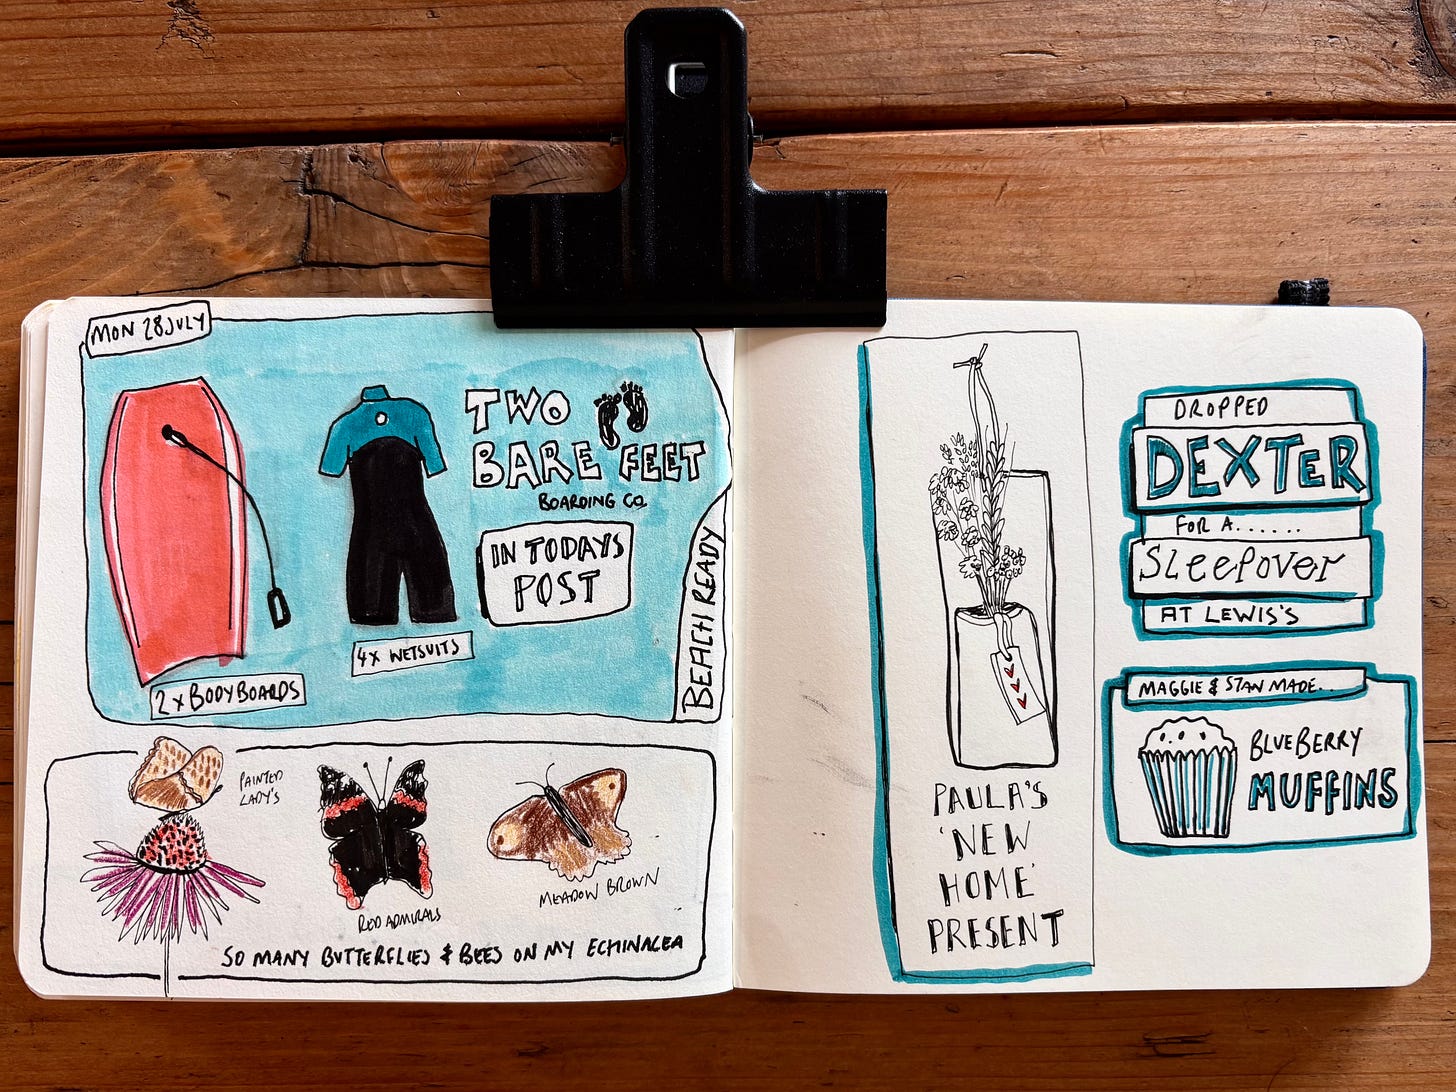 MON 28 JULY
TWO
BARE FEET
BOARDING CO.
IN TODAYS
POST
BEACH READY
4x WETSUITS
2 x BODYBOARDS
PAINTED
LADY'S
RED ADMIRALS
MEADOW BROWN
SO MANY BUTTERFLIES & BEES ON MY ECHINACEA
PAULA'S
'NEW
HOME'
PRESENT
DROPPED
DEXTER
FOR A......
SLeePover
AT LEWIS'S
MAGGIE & STAN MADE..
BLUEBERRY
MUFFINS